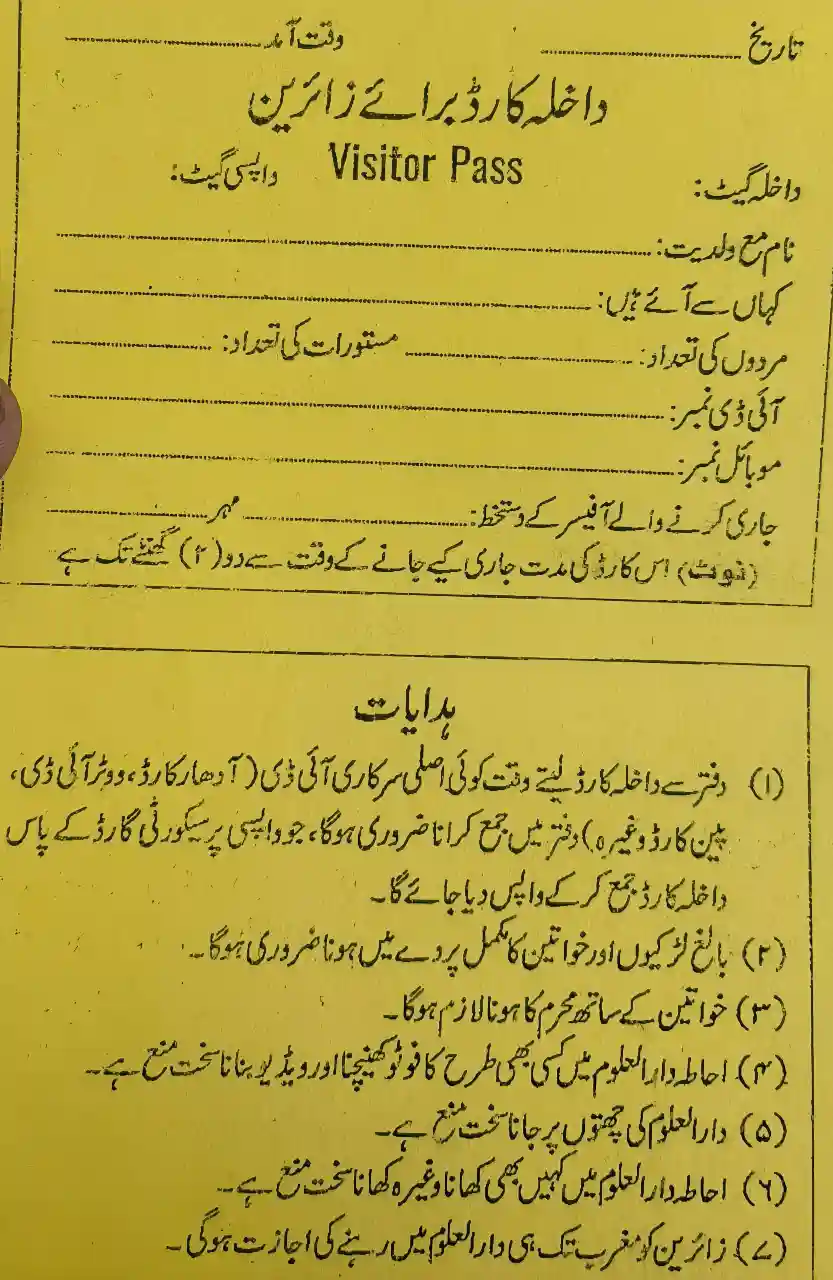 تاریخ ........................ وقت آمد ........................
داخلہ کارڈ برائے زائرین
Visitor Pass
داخلہ گیٹ: واپسی گیٹ:
نام مع ولدیت: ........................
کہاں سے آئے ہیں: ........................
مردوں کی تعداد: ........................ مستورات کی تعداد: ........................
آئی ڈی نمبر: ........................
موبائل نمبر: ........................
جاری کرنے والے آفیسر کے دستخط: ........................ مہر ........................
(نوٹ) اس کارڈ کی مدت جاری کیے جانے کے وقت سے دو (۲) گھنٹے تک ہے
ہدایات
(۱) دفتر سے داخلہ کارڈ لیتے وقت کوئی اصلی سرکاری آئی ڈی (آدھار کارڈ، ووٹر آئی ڈی،
پین کارڈ وغیرہ) دفتر میں جمع کرانا ضروری ہوگا، جو واپسی پر سیکورٹی گارڈ کے پاس
داخلہ کارڈ جمع کر کے واپس دیا جائے گا۔
(۲) بالغ لڑکیوں اور خواتین کا مکمل پردے میں ہونا ضروری ہوگا۔
(۳) خواتین کے ساتھ محرم کا ہونا لازم ہوگا۔
(۴) احاطہ دارالعلوم میں کسی بھی طرح کا فوٹو کھینچنا اور ویڈیو بنانا سخت منع ہے۔
(۵) دارالعلوم کی چھتوں پر جانا سخت منع ہے۔
(۶) احاطہ دارالعلوم میں کہیں بھی کھانا وغیرہ کھانا سخت منع ہے۔
(۷) زائرین کو مغرب تک ہی دارالعلوم میں رہنے کی اجازت ہوگی۔